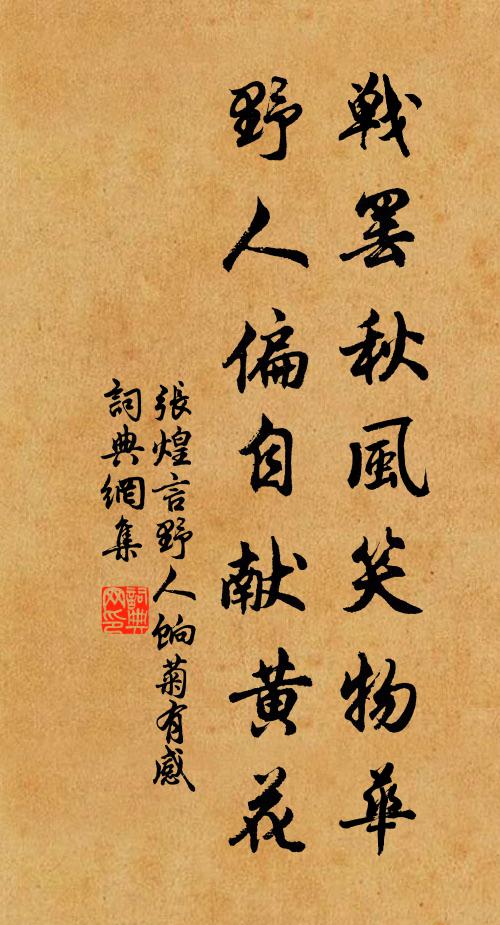 戰罷秋風笑物華
野人偏自献黄花
張煌言野人餉菊有感
詞典網集
詞典网印